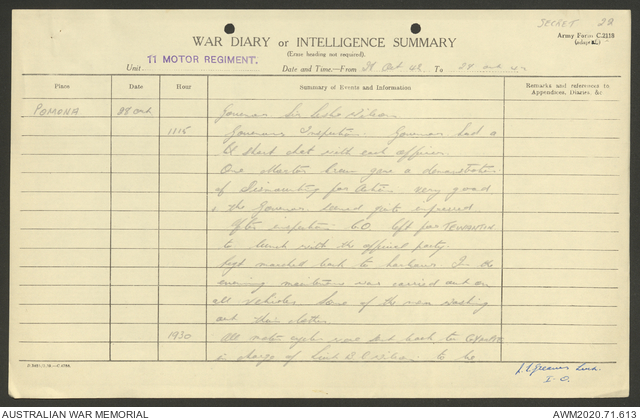 SECRET 22
Army Form C.2118
WAR DIARY or INTELLIGENCE SUMMARY
(Erase heading not required).
Unit 11 MOTOR REGIMENT. Date and Time—From 28 Oct 42 To 28 Oct 42
Place Date Hour Summary of Events and Information Remarks and references to Appendices, Diaries, &c
POMONA 28 Oct Governor Sir Leslie Wilson
1115 Governors Inspection. Governor had a
short chat with each officer.
One Mortar team gave a demonstration
of Dismounting for Action very good
& the Governor seemed quite impressed
After inspection CO. left for TEWANTIN
to lunch with the official party.
Regt marched back to harbour. In the
evening maintenance was carried out on
all vehicles. Some of the men washing
out their clothes
1930 All motor cycles were sent back to
in charge of Lieut to be
Lieut.
I.O.
AUSTRALIAN WAR MEMORIAL
AWM2020.71.613